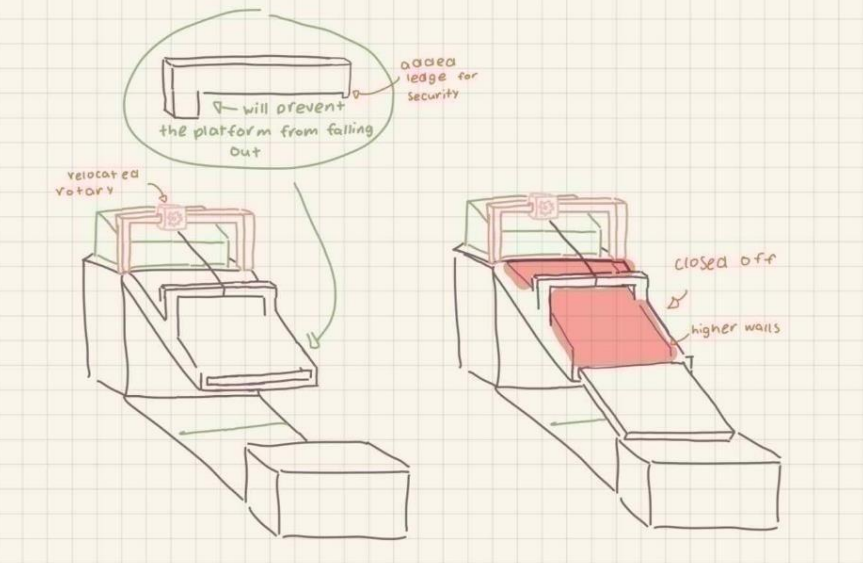 added
ledge for
security
will prevent
the platform from falling
out
relocated
rotary
closed off
higher walls